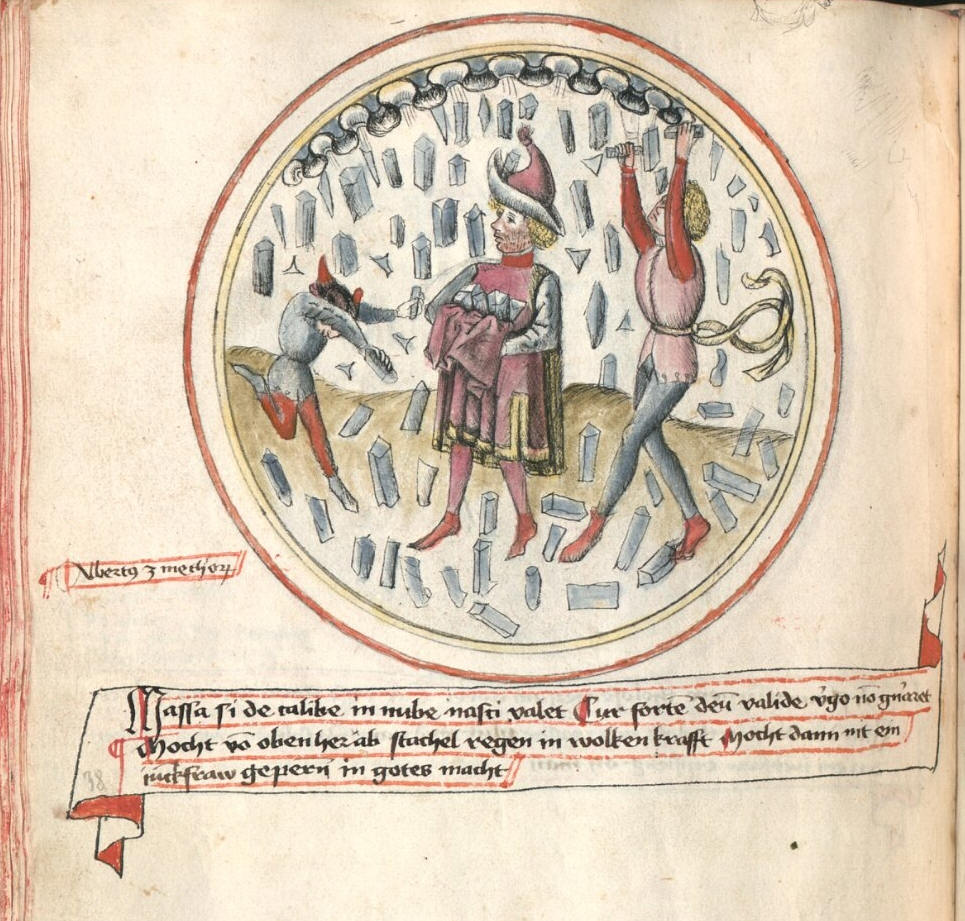 Albertus 3 metheororum
Massa si de calibe in nube nasci valet Cur forte deum valide virgo non generaret
Mocht von oben her ab stachel regen in wolken krafft Mocht dann nit ein
iuckfraw gepern in gotes macht
38